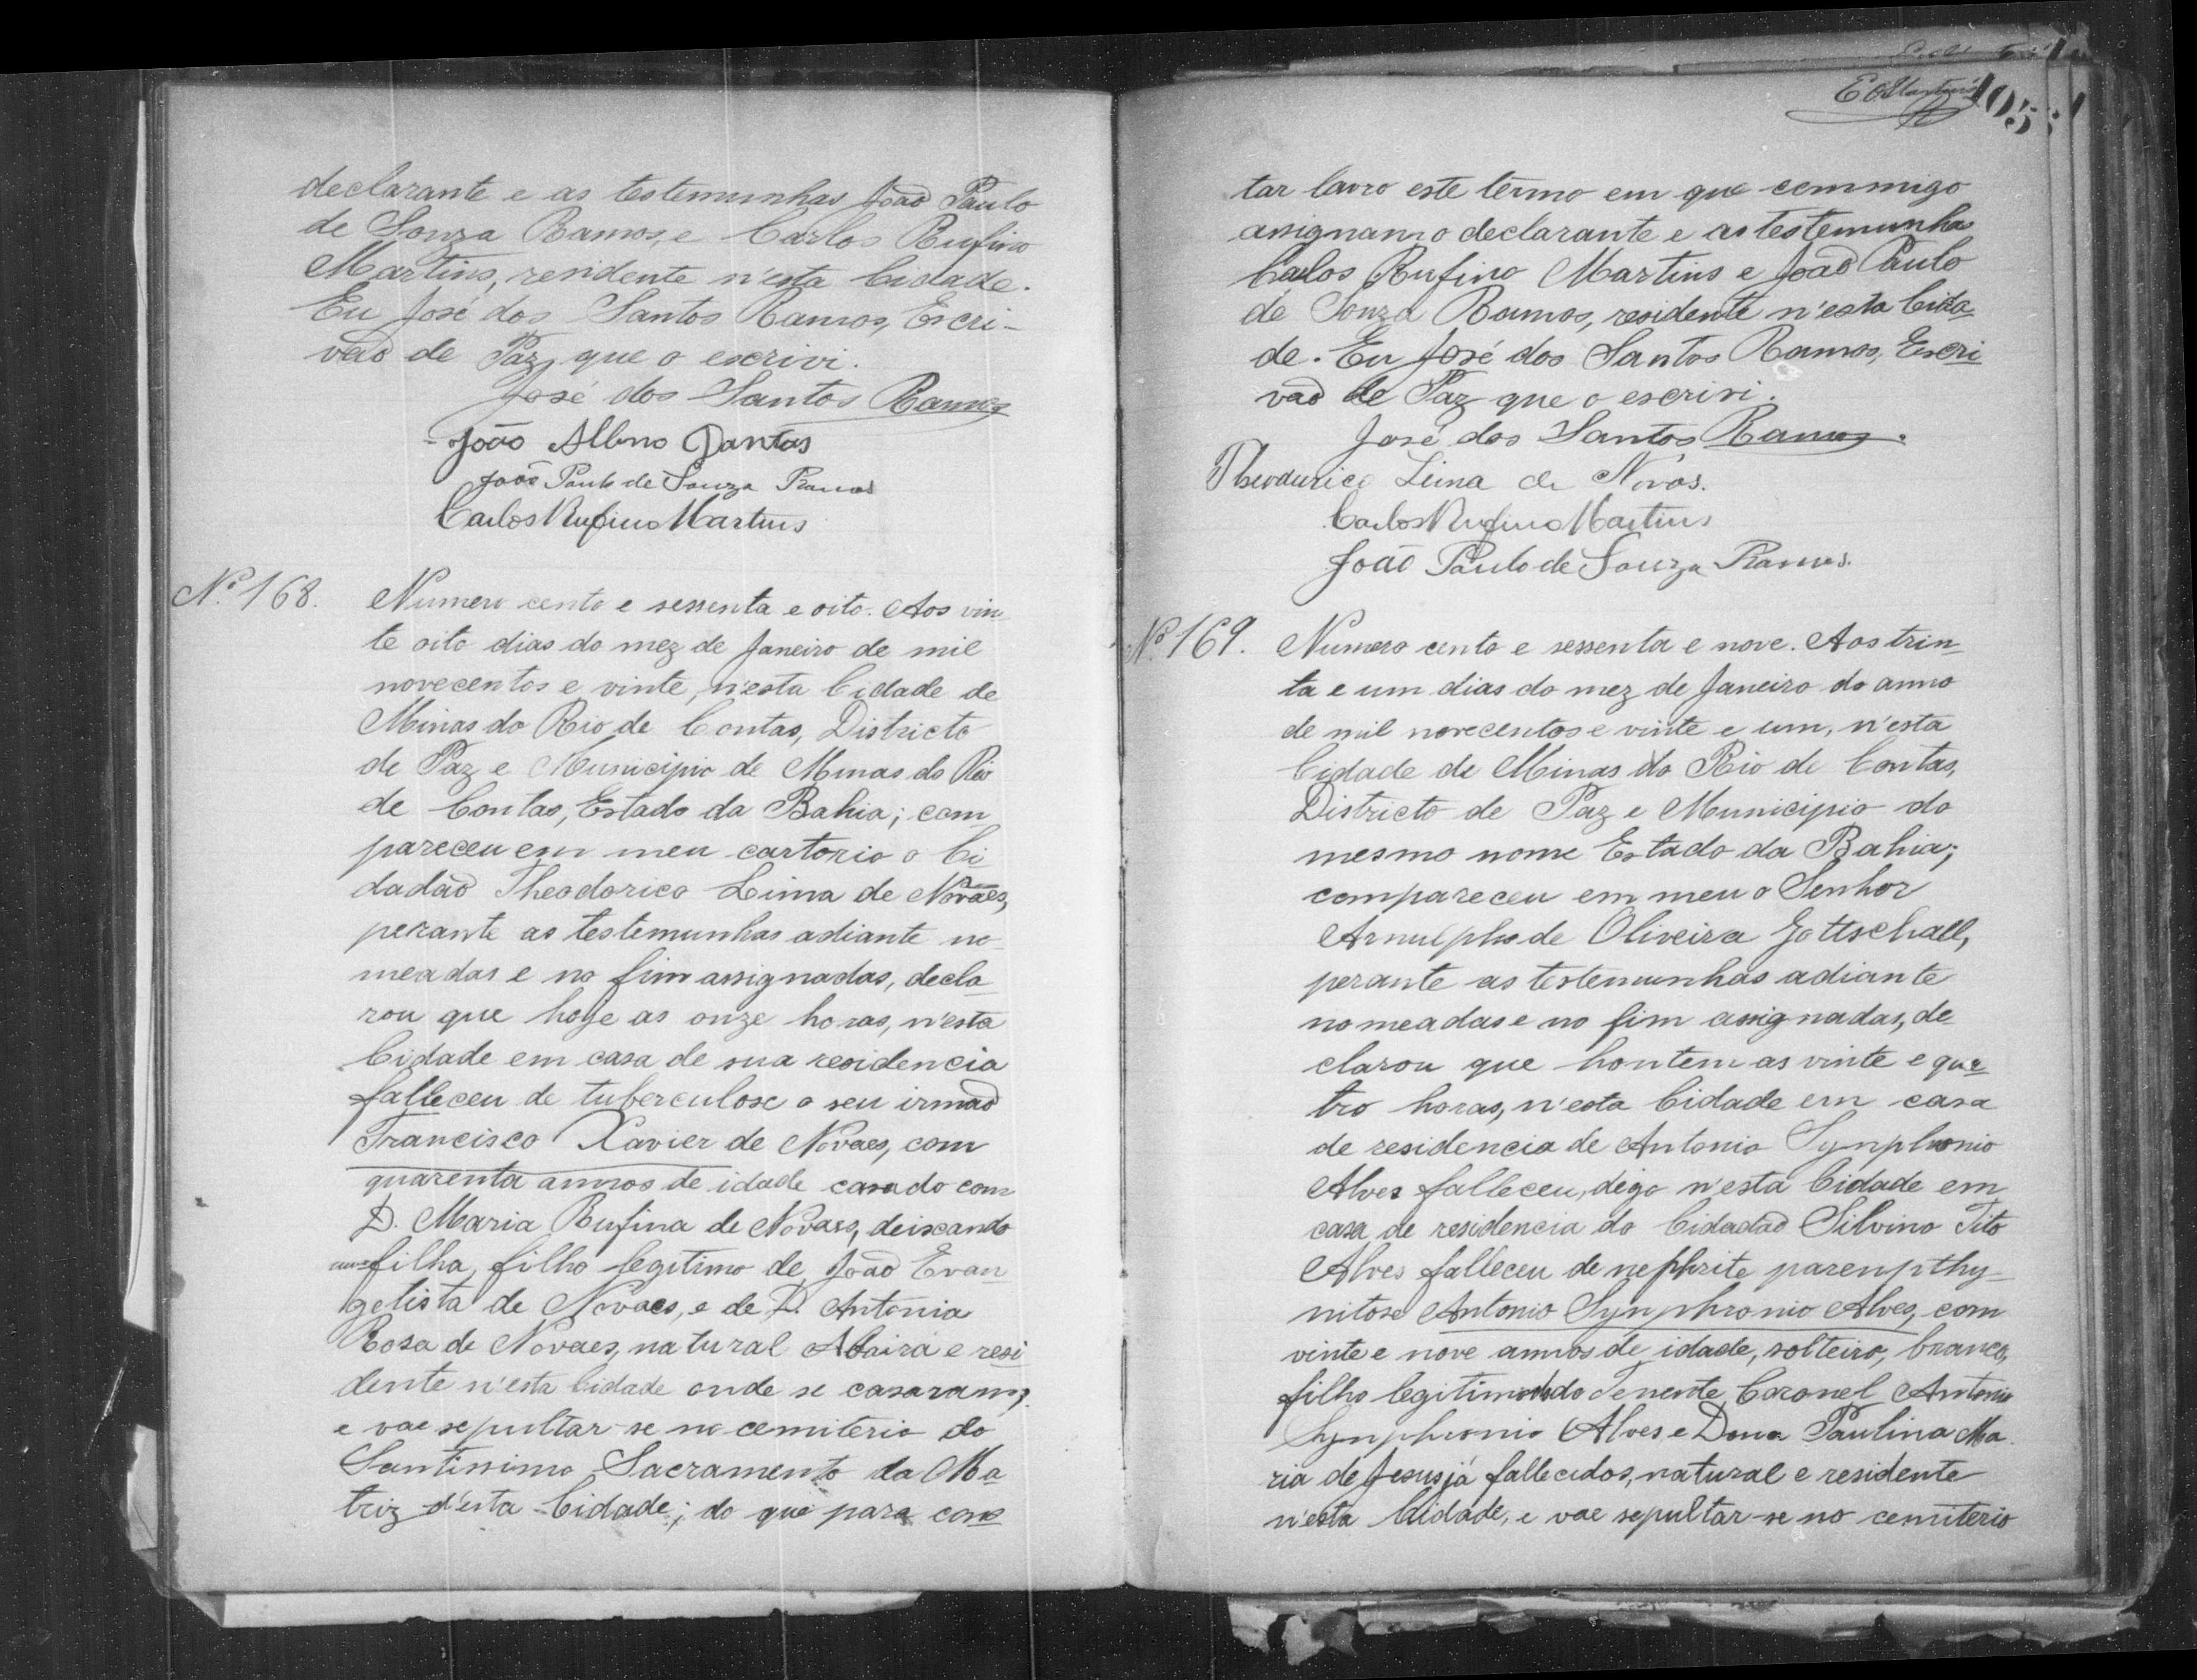 declarante e as testemunhas João Paulo
de Souza Ramos, e Carlos Rufino
Martins, residente n'esta Cidade.
Eu José dos Santos Ramos, Escri-
vão de Paz, que o escrivi.
José dos Santos Ramos
João Albino Dantas
João Paulo de Souza Ramos
Carlos Rufino Martins
Nº 168.
Numero cento e sessenta e oito. Aos vin
te oito dias do mez de Janeiro de mil
novecentos e vinte, n'esta Cidade de
Minas do Rio de Contas, Districto
de Paz e Municipio de Minas do Rio
de Contas, Estado da Bahia; com
pareceu em meu cartorio o Ci
dadão Theodorico Lima de Novaes,
perante as testemunhas adiante no
meadas e no fim assignadas, decla
rou que hoje as onze horas, n'esta
Cidade em casa de sua residencia
falleceu de tuberculose o seu irmão
Francisco Xavier de Novaes, com
quarenta annos de idade casado com
D. Maria Rufina de Novaes, deixando
uma filha, filho legitimo de João Evan
gelista de Novaes, e de D. Antonia
Rosa de Novaes, natural Abaira e resi
dente n'esta Cidade onde se casaram,
e vae sepultar-se no cemiterio do
Santissimo Sacramento da Ma
triz d'esta Cidade; do que para cons
E O Martins
105
tar lavro este termo em que commigo
assignam o declarante e as testemunhas
Carlos Rufino Martins e João Paulo
de Souza Ramos, residente n'esta Cida
de. Eu José dos Santos Ramos, Escri
vão de Paz que o escrivi.
José dos Santos Ramos.
Theodurico Lima de Novas.
Carlos Rufino Martins
João Paulo de Souza Ramos.
Nº 169.
Numero cento e sessenta e nove. Aos trin
ta e um dias do mez de Janeiro do anno
de mil novecentos e vinte e um, n'esta
Cidade de Minas do Rio de Contas,
Districto de Paz e Municipio do
mesmo nome Estado da Bahia;
compareceu em meu o Senhor
Arnulpho de Oliveira Gottschall,
perante as testemunhas adiante
nomeadas e no fim assignadas, de
clarou que hontem as vinte e qua
tro horas, n'esta Cidade em casa
de residencia de Antonio Symphronio
Alves falleceu, digo n'esta Cidade em
casa de residencia do Cidadão Silvino Tito
Alves falleceu de nephrite parenpthy-
mitose Antonio Symphronio Alves, com
vinte e nove annos de idade, solteiro, branco,
filho legitimo do Tenente Coronel Antonio
Symphronio Alves e Dona Paulina Ma
ria de Jesus já fallecidos, natural e residente
n'esta Cidade, e vae sepultar-se no cemiterio